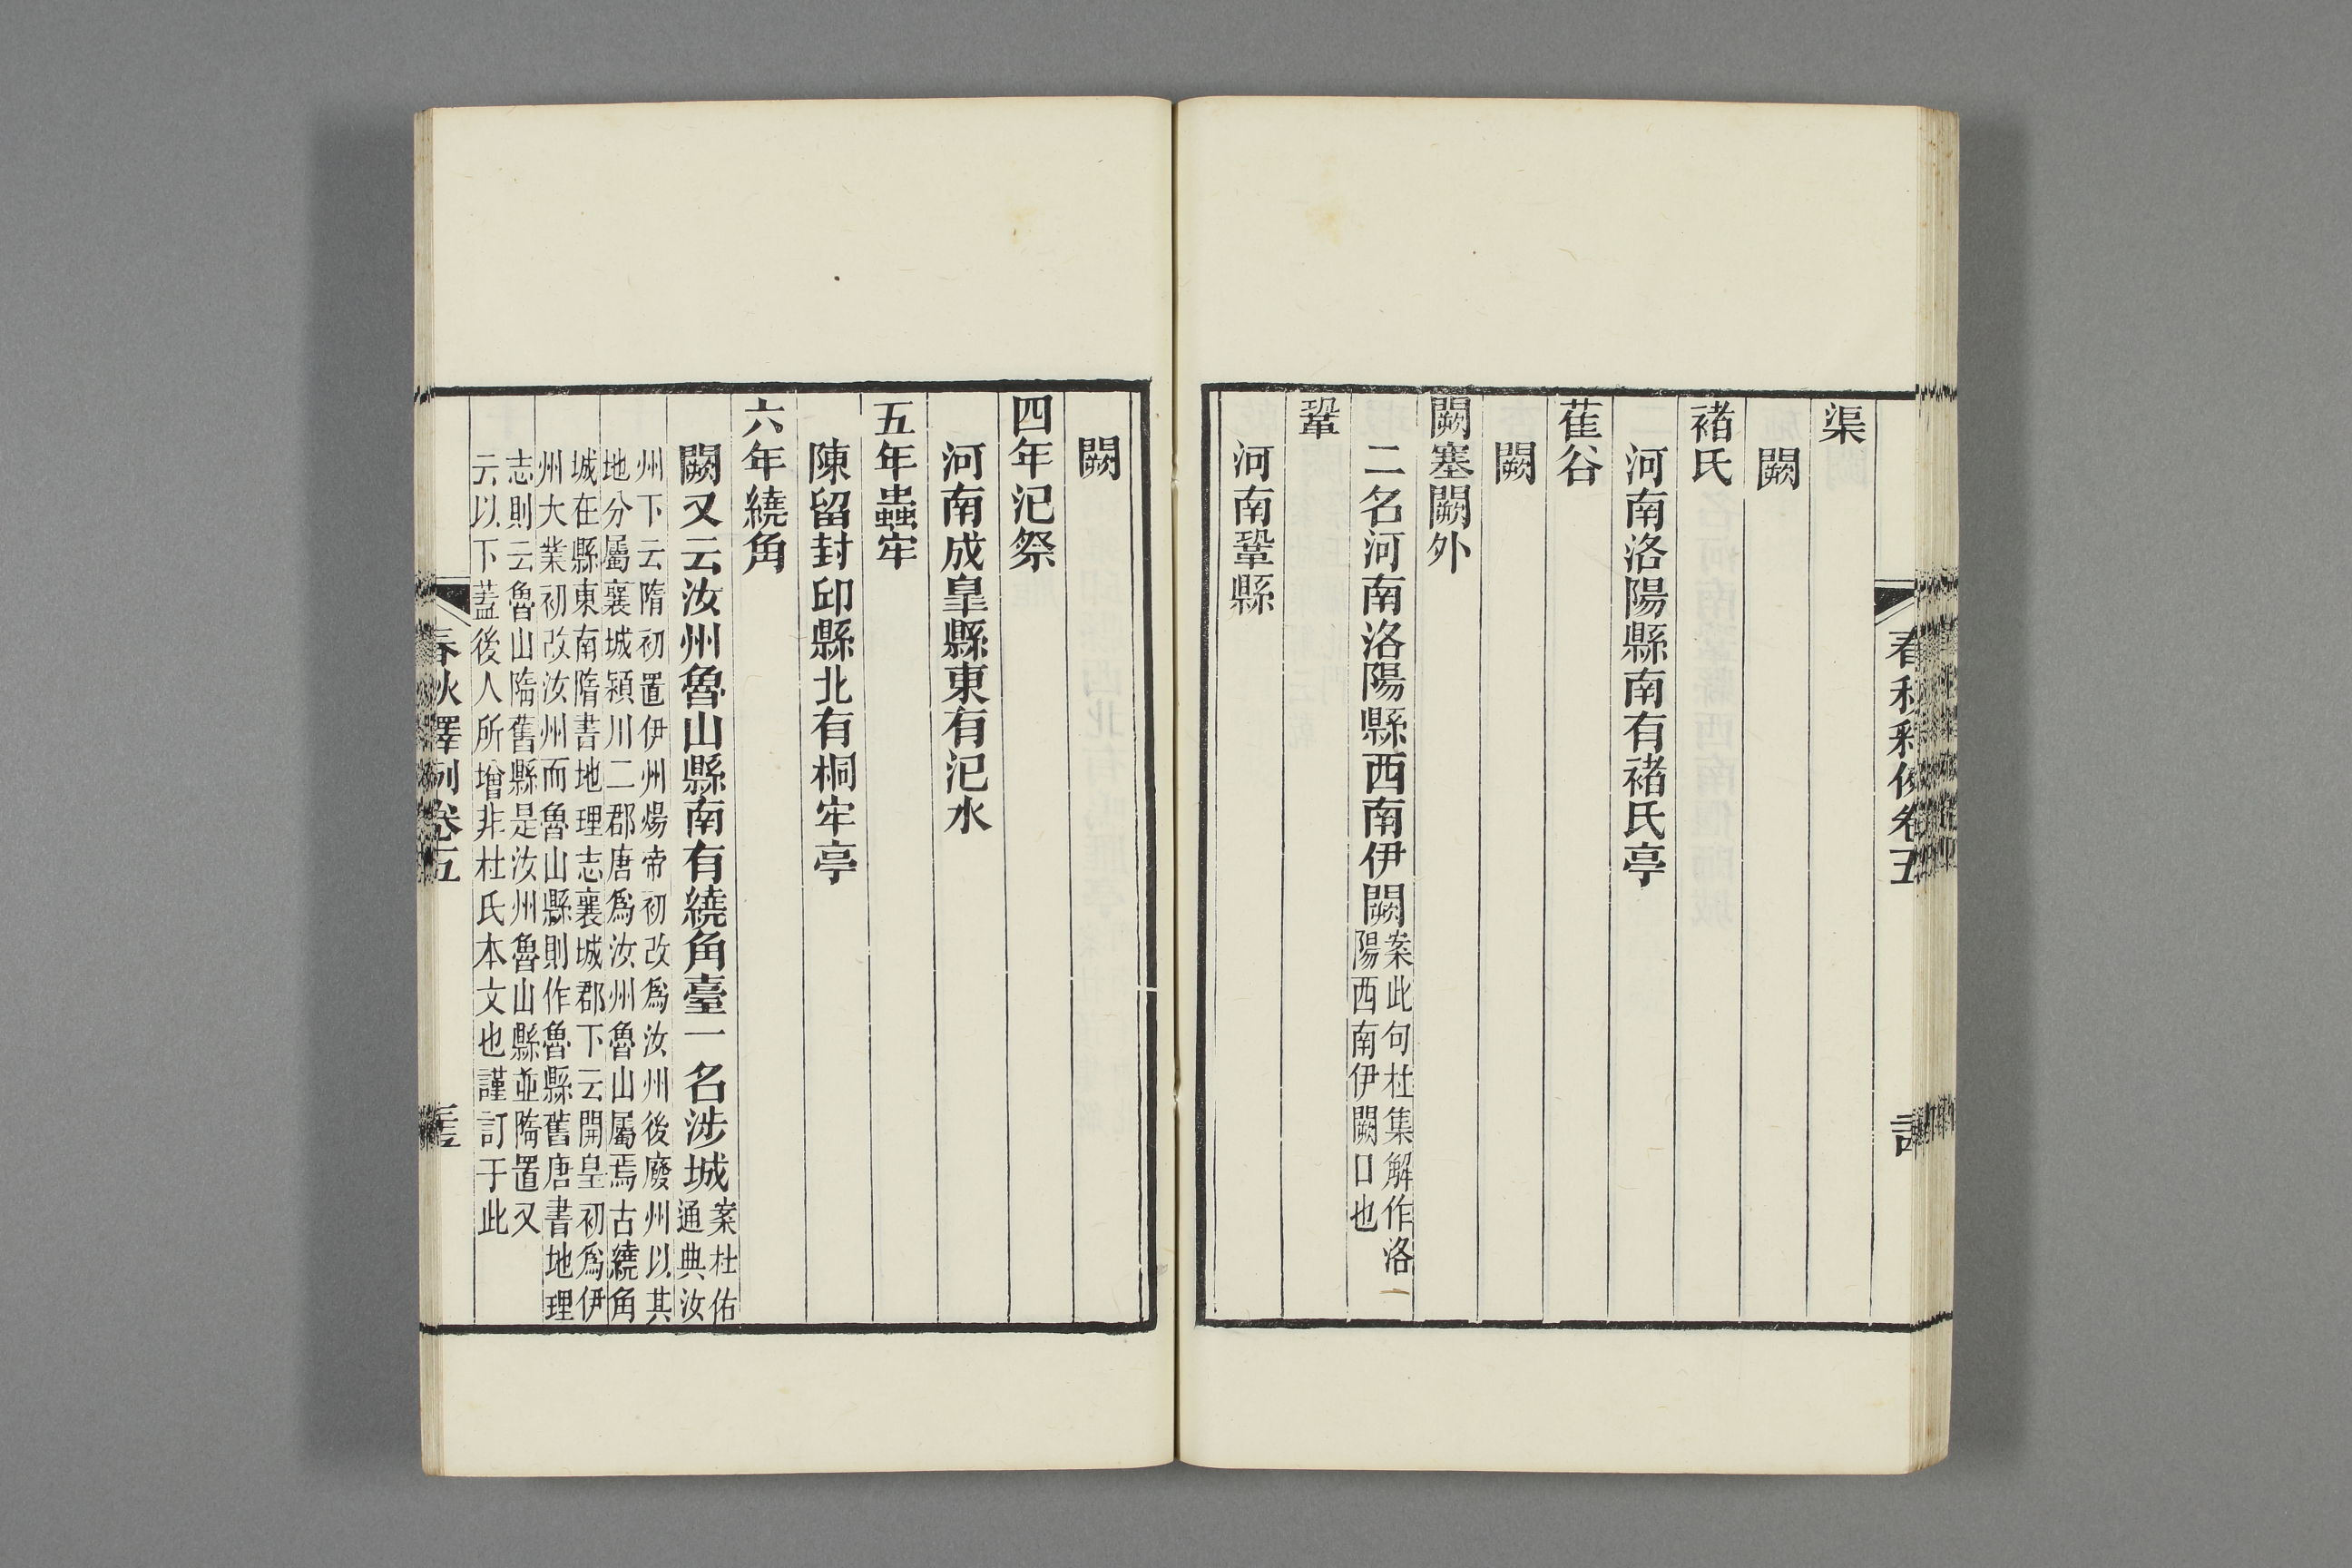 渠
闕
褚氏
河南洛陽縣南有褚氏亭
萑谷
闕
闕塞闕外
二名河南洛陽縣西南伊闕案此句杜集解作洛
陽西南伊闕口也
鞏
河南鞏縣
闕
四年汜祭
河南成皐縣東有汜水
五年蟲牢
陳留封邱縣北有桐牢亭
六年繞角
闕又云汝州魯山縣南有繞角臺一名涉城案杜佑
通典汝
州下云隋初置伊州煬帝初改爲汝州後廢州以其
地分屬襄城潁川二郡唐爲汝州魯山屬焉古繞角
城在縣東南隋書地理志襄城郡下云開皇初爲伊
州大業初改汝州而魯山縣則作魯縣舊唐書地理
志則云魯山隋舊縣是汝州魯山縣並隋置又
云以下蓋後人所增非杜氏本文也謹訂于此
春秋釋例卷五